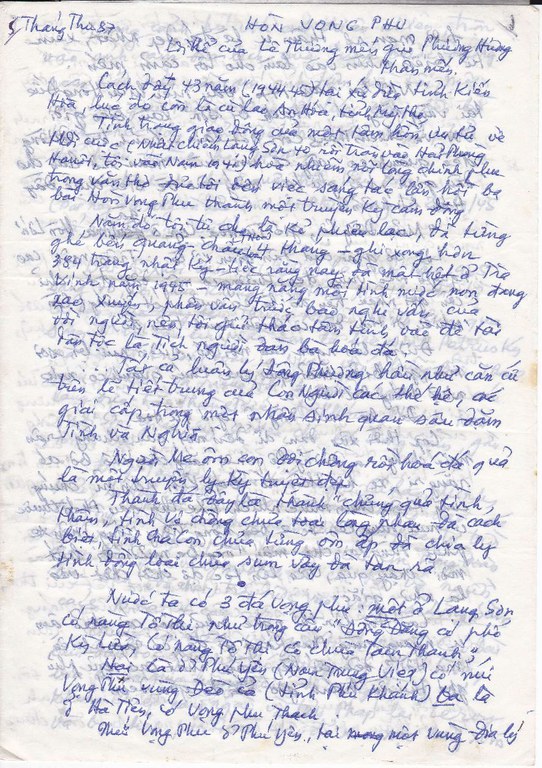 Tháng Thu 87 HÒN VỌNG PHU
Lợi kể của tô Thường mến gửi Phương Hùng
thân mến.
Cách đây 43 năm (1944 45) tại xứ dừa tỉnh Kiến
Hòa, lúc đó còn là cù lao An Hóa, tỉnh Mỹ tho
Tình trạng giao động của một tâm hồn ưu tư về
thời cuộc (Nhật chiếm Lạng Sơn 40, rồi tràn vào Hải Phòng
Hà nội, tôi vào Nam 1940) hòa nhiễm nỗi lòng chinh phu
trong văn thơ đưa tôi đến việc sáng tác liên tiếp ba
bài Hòn Vọng Phu thành một truyện ký cảm động
Năm đó tôi tự cho là kẻ phiêu lạc, đã từng
ghé bến quảng-châu, Thượng-hải - ghi xong hơn
384 trang nhật ký - tiếc rằng nay đã mất hết ở Trà
Vinh năm 1945 - mang nặng một tình nước non đang
xao xuyến, phân vân trước bão
vời nghìn nẻo, tôi gửi thác tâm tình vào đề tài
tân tộc là Tích người đàn bà hóa đá.
.... Tất cả luân lý đông Phương hầu như căn cứ
trên lẽ tiết trung của Con Người các thế hệ, các
giai cấp trong một nhân sinh quan sâu đằm
Tình và Nghĩa
Người Mẹ ôm con đợi chồng rồi hoá đá quả
là một truyện ly kỳ tuyệt đẹp
Thành đá "Đây là thành" chứng quả tình
thảm, tình Vợ chồng chưa toại lòng nhau đã cách
biệt tình Cha con chưa từng ôm ấp đã chia ly
tình đồng loại chưa sum vầy đã tan rã
Nước ta có 3 đá Vọng phu: một ở Lạng Sơn
có nàng Tô Thị như trong câu "Đồng Đăng có phố
Kỳ Lừa, Có nàng Tô Thị có chùa Tam Thanh".
Hai là ở Phú Yên (Non Trung Việt) có núi
Vọng Phu vùng Đèo Cả (tỉnh Phú Khánh) Ba là
ở Hà Tiên, có Vọng Phu Thạch.
Núi Vọng Phu ở Phú Yên, tại trong một vùng địa lý